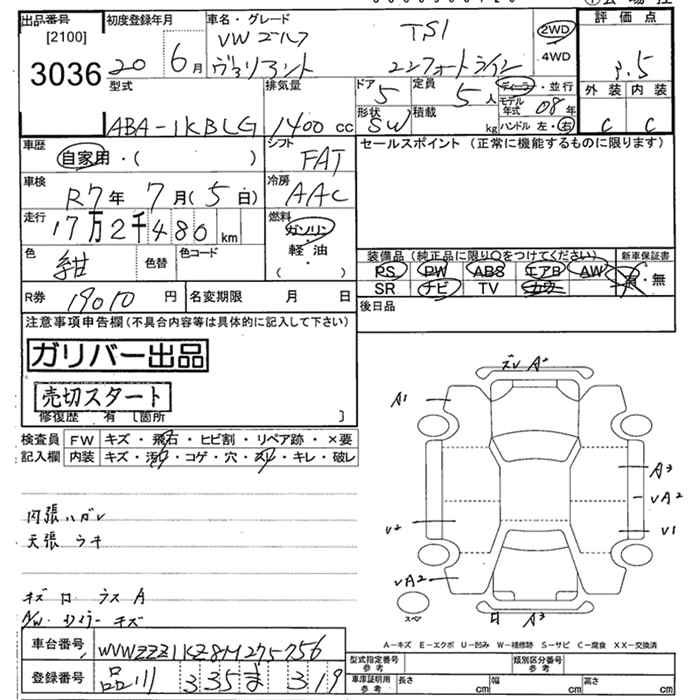 出品番号 初度登録年月 車名・グレード 評価点
[2100] VW ゴルフ TSI 2WD
3036 20 6月 ヴァリアント コンフォートライン 4WD 3.5
型式 排気量 ドア 定員 ディーラー・並行 外装 内装
5 5人 モデル年式 08年
ABA-1KBLG 1400 cc 形状 SW 積載 kg ハンドル 左・右 C C
車歴 自家用・( ) シフト FAT セールスポイント (正常に機能するものに限ります)
車検 R7年 7月(5日) 冷房 AAC
走行 17万2千480km 燃料 ガソリン・軽油・( )
色 紺 色替 色コード
装備品(純正品に限り〇をつけてください) 新車保証書
PS PW ABS エアB AW 有・無
SR ナビ TV カワ
R券 19010円 名変期限 月 日 後日品
注意事項申告欄(不具合内容等は具体的に記入して下さい)
ガリバー出品
売切スタート
修復歴 有 [箇所 ]
検査員 FW キズ・飛石・ヒビ割・リペア跡・×要
記入欄 内装 キズ・汚れ・コゲ・穴・スレ・キレ・破レ
内張ハガレ
天張
A1
A3
VA2
V2
V1
VA2
A3
スペア
キズ
A/W キズ
A-キズ E-エクボ U-凹み W-補修跡 S-サビ C-腐食 XX-交換済
車台番号 WVWZZZ1KZ8M275756
登録番号 品川 335 ま 319
型式指定番号 参考 類別区分番号 参考
車庫証明用 参考 長さ cm 幅 cm 高さ cm